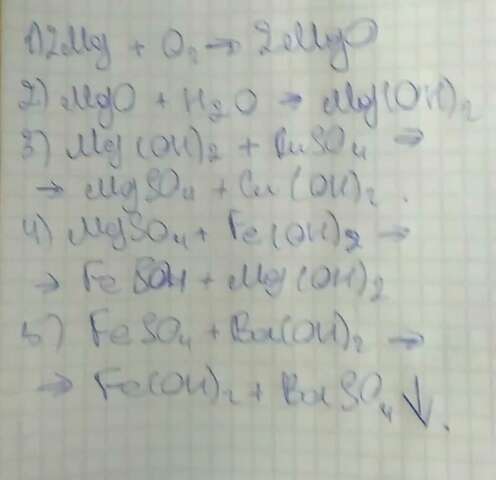 1) 2Mg + O₂ → 2MgO
2) MgO + H₂O → Mg(OH)₂
3) Mg(OH)₂ + CuSO₄ →
→ MgSO₄ + Cu(OH)₂.
4) MgSO₄ + Fe(OH)₂ →
→ FeSO4 + Mg(OH)₂
5) FeSO₄ + Ba(OH)₂ →
→ Fe(OH)₂ + BaSO₄↓.